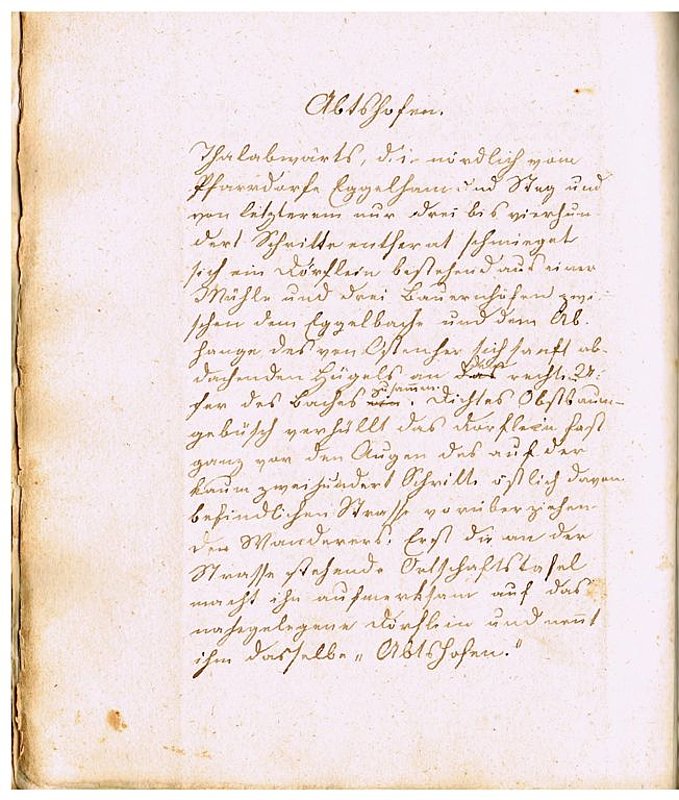 Abtshofen.
Thalabwärts, die nördlich vom
Pfarrdorfe Eggelham und Steg und
von letzterem nur drei bis vierhun
dert Schritte entfernt schmieget
sich ein Dörflein bestehend aus einer
Mühle und drei Bauernhöfen zwi-
schen dem Eggelbache und dem Ab-
hange des von Osten her sich sanft ab-
dachenden Hügels an das rechte U-
fer des Baches zusammen. Dichtes Obstbaum-
gebüsch verhüllt das Dörflein fast
ganz vor den Augen des auf der
kaum zweihundert Schritte östlich davon
befindlichen Strasse vorüberziehen
den Wanderers. Erst die an der
Strasse stehende Ortschaftstafel
macht ihn aufmerksam auf das
nahegelegene Dörflein und nennt
ihm dasselbe „Abtshofen."